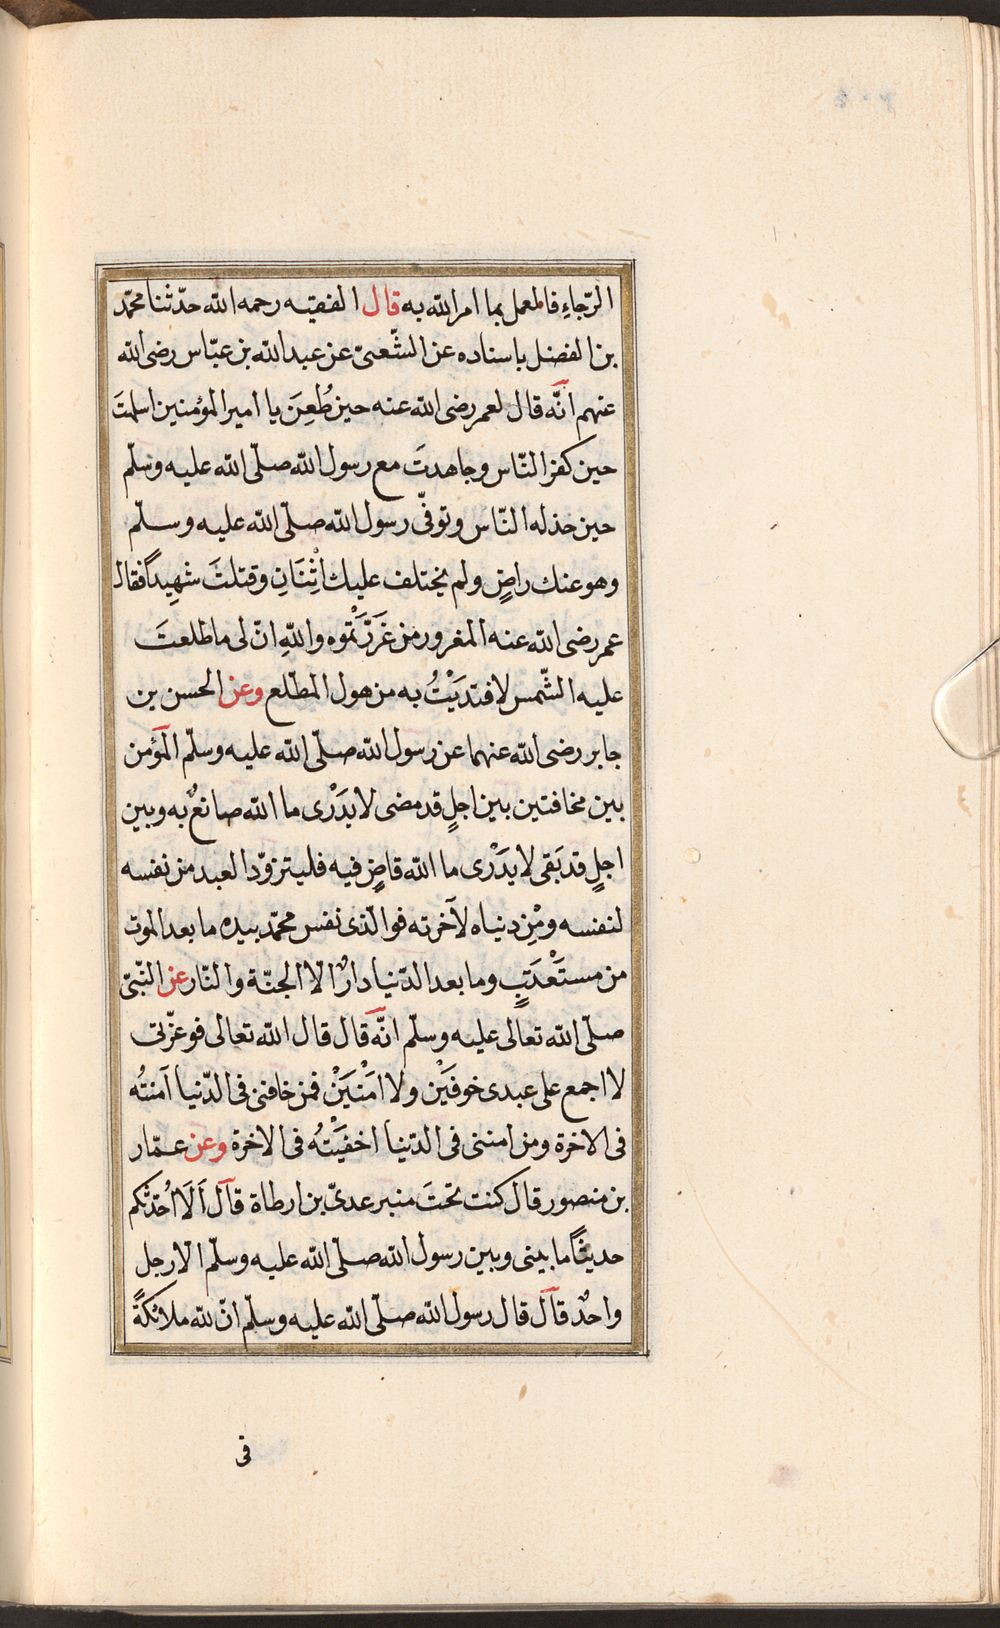 الرّجاءِ فالعمل بما امر الله به قال الفقيه رحمه الله حدّثنا محمّد
بن الفضل باسناده عن الشّعبىّ عن عبد الله بن عبّاس رضى الله
عنهم انّه قال لعمر رضى الله عنه حين طُعِنَ يا امير المؤمنين اسلمتَ
حين كفر النّاس وجاهدتَ مع رسول الله صلّى الله عليه وسلّم
حين خذله النّاس وتوفّى رسول الله صلّى الله عليه وسلّم
وهو عنك راضٍ ولم يختلف عليك اثْنَانِ وقتلتَ شهِيداً فقال
عمر رضى الله عنه المغرور من غَرَّرْتموه واللهِ انّ لى ما طلعتَ
عليه الشّمس لافتدَيْتُ به من هول المطّلع وعن الحسن بن
جابر رضى الله عنهما عن رسول الله صلّى الله عليه وسلّم المؤمن
بين مخافتين بين اجلٍ قد مضى لا يَدْرى ما الله صانعٌ به وبين
اجلٍ قد بَقى لا يَدْرى ما الله قاضٍ فيه فليتزوّد العبد من نفسه
لنفسه ومِنْ دنياه لآخرته فوالّذى نفس محمّد بيده ما بعد الموت
من مستَعْتَبٍ وما بعد الدّنيا دارٌ الّا الجنّة والنّار عن النّبىّ
صلّى الله تعالى عليه وسلّم انّه قال قال الله تعالى فوعزّتى
لا اجمع على عبدى خوفَيْن ولا امْنَيَنْ فمن خافنى فى الدّنيا آمنتُه
فى الاخرة ومن امننى فى الدّنيا اخفَيْتُه فى الاخرة وعن عمّار
بن منصور قال كنت تحتَ منبر عدىّ بن ارطاة قال اَلَا اُحدّثكم
حديثاً ما بينى وبين رسول الله صلّى الله عليه وسلّم الّا رجل
واحدٌ قال قال رسول الله صلّى الله عليه وسلّم انّ لله ملائكةً
فى